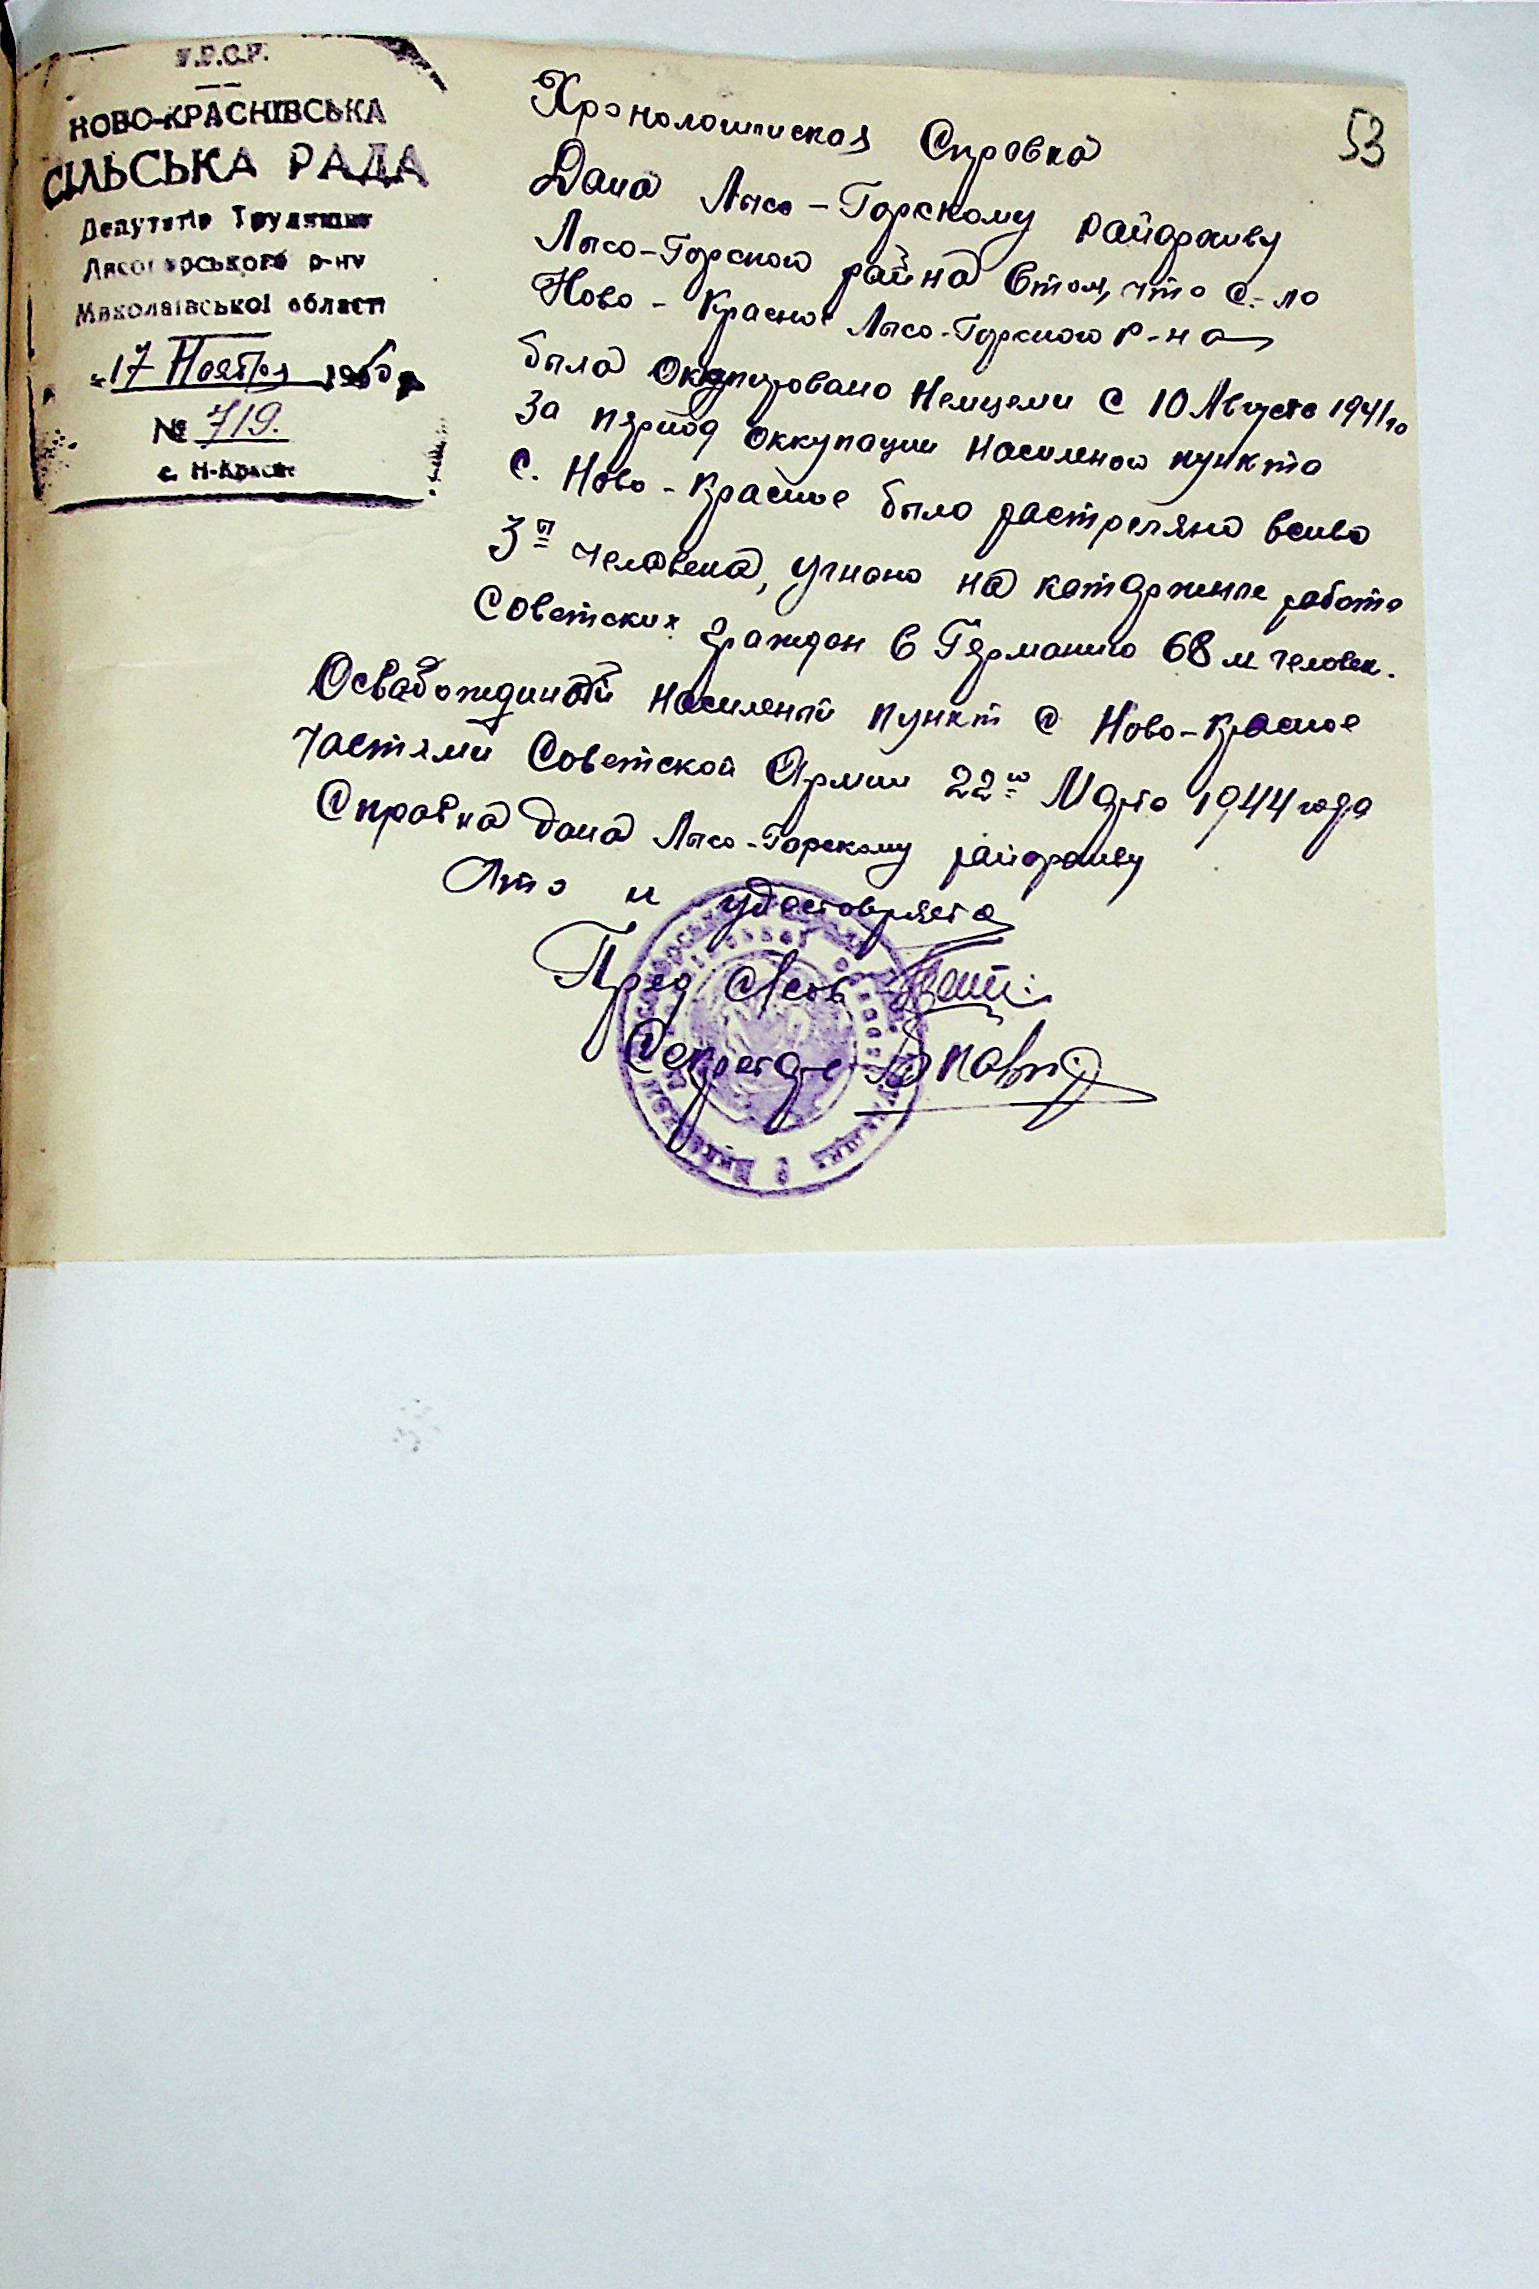 У.Р.С.Р.
НОВО-КРАСНІВСЬКА
СІЛЬСЬКА РАДА
Депутатів Трудящих
Лисогорського р-ну
Миколаївської області
"17" Ноября 195 р.
№ 719.
с. Н-Красне
53
Хронологическая Справка
Дана Лысо-Горскому райархиву
Лысо-Горского района Втом, что с-ло
Ново-Красное Лысо-Горского р-на
была Окупировано Немцеми с 10 Августа 1941 го
За пяриод оккупации населеного пункта
с. Ново-Красное было растреляно всиво
3п человека, угнано на каторжные работы
Советских граждан в Германию 68м человек.
Освабожидиный населеный пункт с Ново-Красное
Частями Советской Армии 22го Марта 1944 года
Справка дана Лысо-Горскому райархиву
Что и удостовряется
Пред с/сов
Секретарь